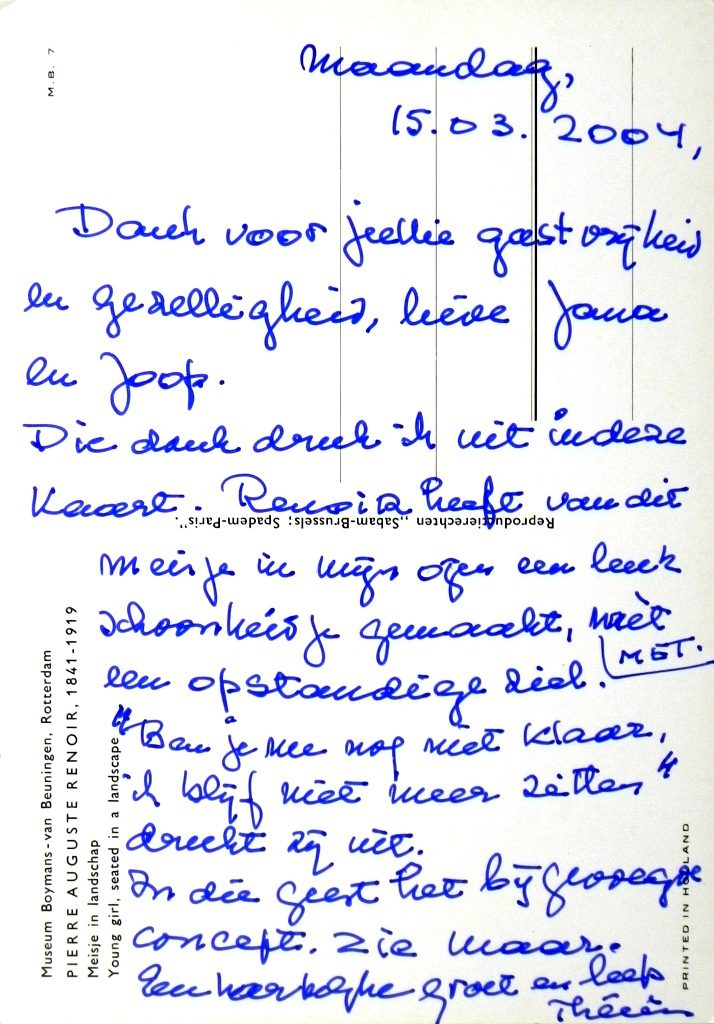 Maandag,
15.03.2004,
Dank voor jullie gastvrijheid
en gezelligheid, lieve Jana
en Joop.
Die dank druk ik uit in deze
Kaart. Renoir heeft van dit
meisje in mijn ogen een leuk
schoonheidje gemaakt,
MET.
een opstandige ziel.
"Ben je nu nog niet klaar,
ik blijf niet meer zitten"
drukt zij uit.
In die geest het bijgevoegde
concept. Zie maar.
Een hartelijke groet en
M.B. 7
Reproductierechten „Sabam-Brussels; Spadem-Paris".
Museum Boymans-van Beuningen, Rotterdam
PIERRE AUGUSTE RENOIR, 1841-1919
Meisje in landschap
Young girl, seated in a landscape
PRINTED IN HOLLAND